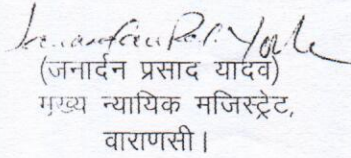 (जनार्दन प्रसाद यादव)
मुख्य न्यायिक मजिस्ट्रेट,
वाराणसी।